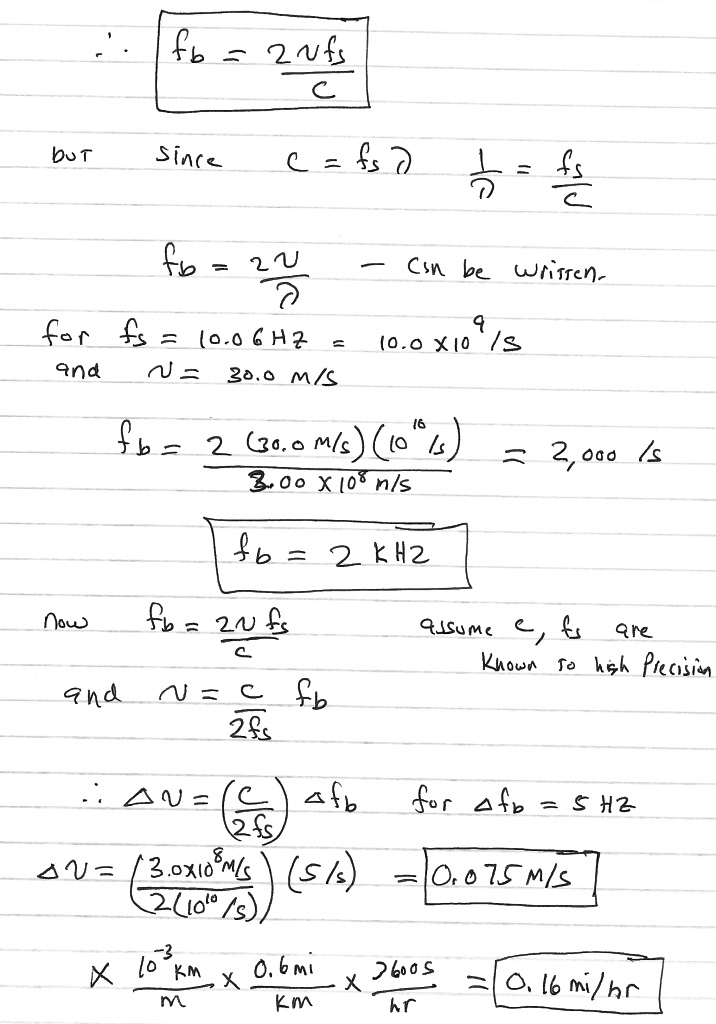 ∴ fb = 2vfs/c
but since c = fsλ 1/λ = fs/c
fb = 2v/λ – can be written.
for fs = 10.0 GHz = 10.0 x 10⁹ /s
and v = 30.0 m/s
fb = 2 (30.0 m/s)(10¹⁰ /s)/3.00 x 10⁸ m/s = 2,000 /s
fb = 2 KHz
now fb = 2v fs/c assume c, fs are
known to high precision
and v = c/2fs fb
∴ Δv = (c/2fs) Δfb for Δfb = 5 Hz
Δv = (3.0x10⁸ m/s/2(10¹⁰ /s)) (5 /s) = 0.075 m/s
x 10⁻³ km/m x 0.6 mi/km x 3600 s/hr = 0.16 mi/hr